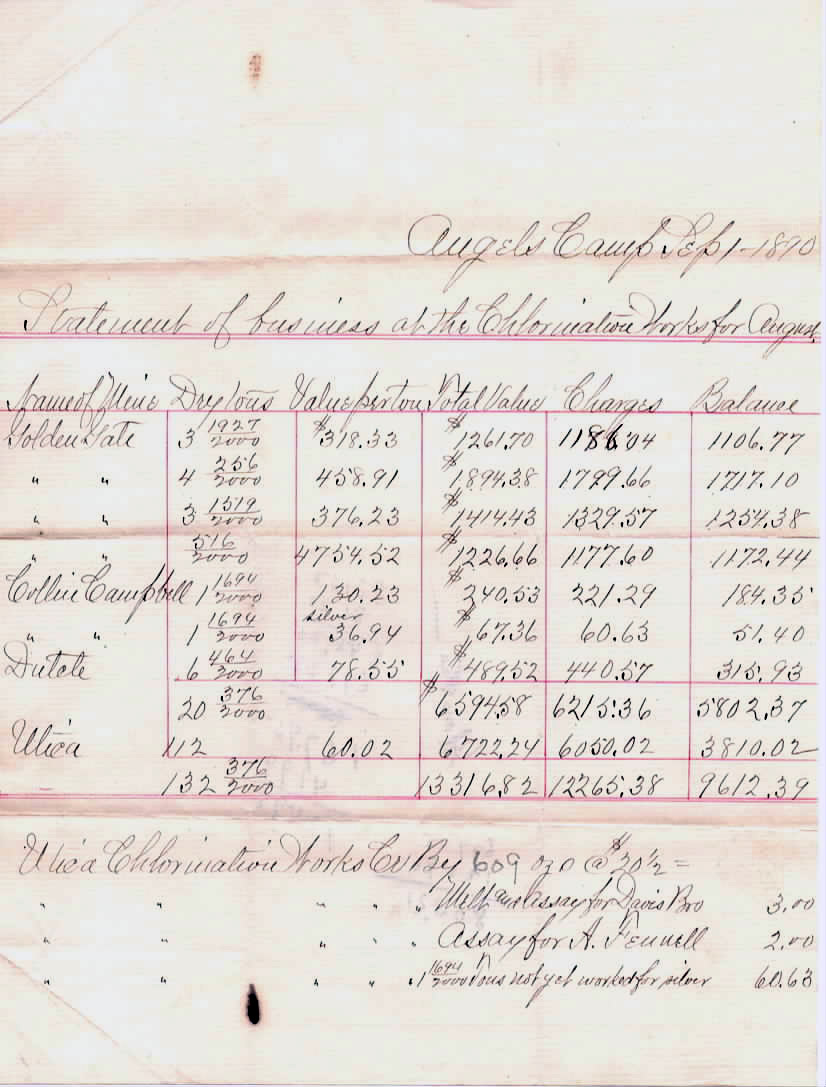 Angels Camp Sep 1-1890
Statement of business at the Chlorination Works for August
Name of Mine Dry tons Value per ton Total Value Charges Balance
Golden Gate 3 1927/2000 $318.33 $1261.70 1186.04 1106.77
" " 4 256/2000 458.91 $1894.38 1799.66 1717.10
" " 3 1519/2000 376.23 $1414.43 1329.57 1254.38
" " 516/2000 4754.52 $1226.66 1177.60 1172.44
Collin Campbell 1 1694/2000 130.23 $240.53 221.29 184.35
" " 1 1694/2000 silver 36.94 $67.36 60.63 51.40
Dutch 6 464/2000 78.55 $489.52 440.57 315.93
20 376/2000 $6594.58 6215.36 5802.37
Utica 112 60.02 6722.24 6050.02 3810.02
132 376/2000 13316.82 12265.38 9612.39
Utica Chlorination Works Cr By 609 ozs @ $20 1/2 =
" " " " " Melt and assay for Davis Bro 3.00
" " " " " Assay for A. Fennell 2.00
" " " " " 1 1694/2000 Tons not yet worked for silver 60.63